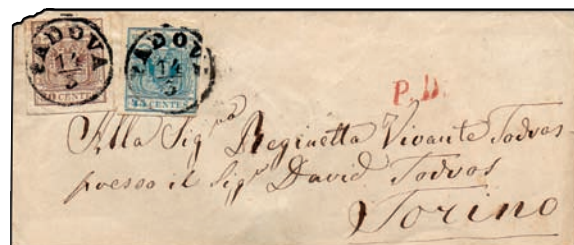 PADOVA PADOVA
14/5 14/5
30 CENTES 45 CENTES
P.D.
Alla Sig.ra Reginetta Vivante Todros
presso il Sig.r David Todros
Torino